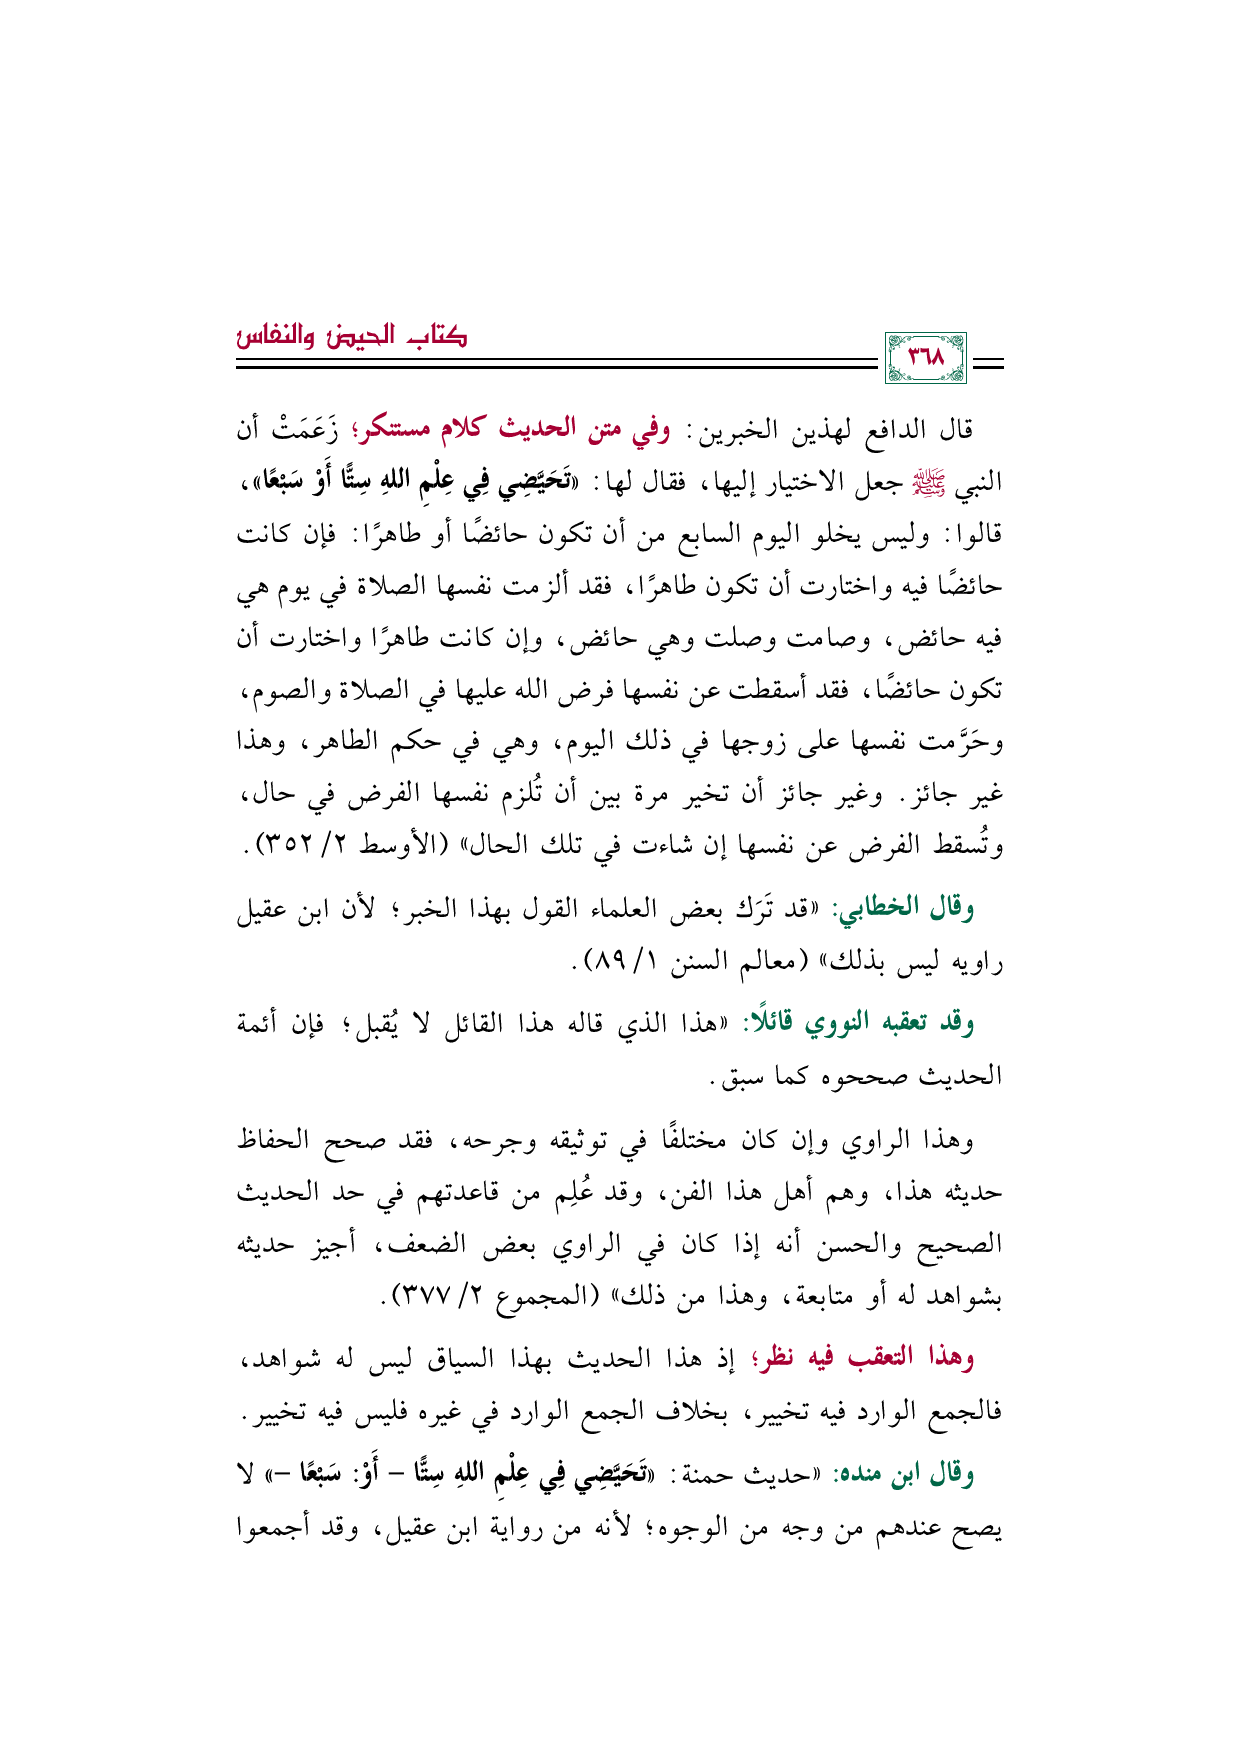 كتاب الحيض والنفاس
٣٦٨
قال الدافع لهذين الخبرين: وفي متن الحديث كلام مستنكر؛ زَعَمَتْ أن
النبي ﷺ جعل الاختيار إليها، فقال لها: «تَحَيَّضِي فِي عِلْمِ اللهِ سِتًّا أَوْ سَبْعًا»،
قالوا: وليس يخلو اليوم السابع من أن تكون حائضًا أو طاهرًا: فإن كانت
حائضًا فيه واختارت أن تكون طاهرًا، فقد ألزمت نفسها الصلاة في يوم هي
فيه حائض، وصامت وصلت وهي حائض، وإن كانت طاهرًا واختارت أن
تكون حائضًا، فقد أسقطت عن نفسها فرض الله عليها في الصلاة والصوم،
وحَرَّمت نفسها على زوجها في ذلك اليوم، وهي في حكم الطاهر، وهذا
غير جائز. وغير جائز أن تخير مرة بين أن تُلزم نفسها الفرض في حال،
وتُسقط الفرض عن نفسها إن شاءت في تلك الحال» (الأوسط ٢/ ٣٥٢).
وقال الخطابي: «قد تَرَك بعض العلماء القول بهذا الخبر؛ لأن ابن عقيل
راويه ليس بذلك» (معالم السنن ١/ ٨٩).
وقد تعقبه النووي قائلًا: «هذا الذي قاله هذا القائل لا يُقبل؛ فإن أئمة
الحديث صححوه كما سبق.
وهذا الراوي وإن كان مختلفًا في توثيقه وجرحه، فقد صحح الحفاظ
حديثه هذا، وهم أهل هذا الفن، وقد عُلِم من قاعدتهم في حد الحديث
الصحيح والحسن أنه إذا كان في الراوي بعض الضعف، أجيز حديثه
بشواهد له أو متابعة، وهذا من ذلك» (المجموع ٢/ ٣٧٧).
وهذا التعقب فيه نظر؛ إذ هذا الحديث بهذا السياق ليس له شواهد،
فالجمع الوارد فيه تخيير، بخلاف الجمع الوارد في غيره فليس فيه تخيير.
وقال ابن منده: «حديث حمنة: «تَحَيَّضِي فِي عِلْمِ اللهِ سِتًّا – أَوْ: سَبْعًا –» لا
يصح عندهم من وجه من الوجوه؛ لأنه من رواية ابن عقيل، وقد أجمعوا